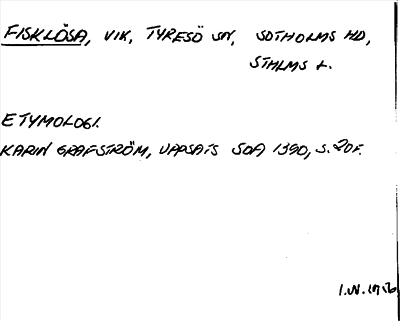 FISKLÖSA, VIK, TYRESÖ SN, SOTHOLMS HD,
STHLMS L.
ETYMOLOGI.
KARIN GRAFSTRÖM, UPPSATS SOA 1990, S. 20 F.